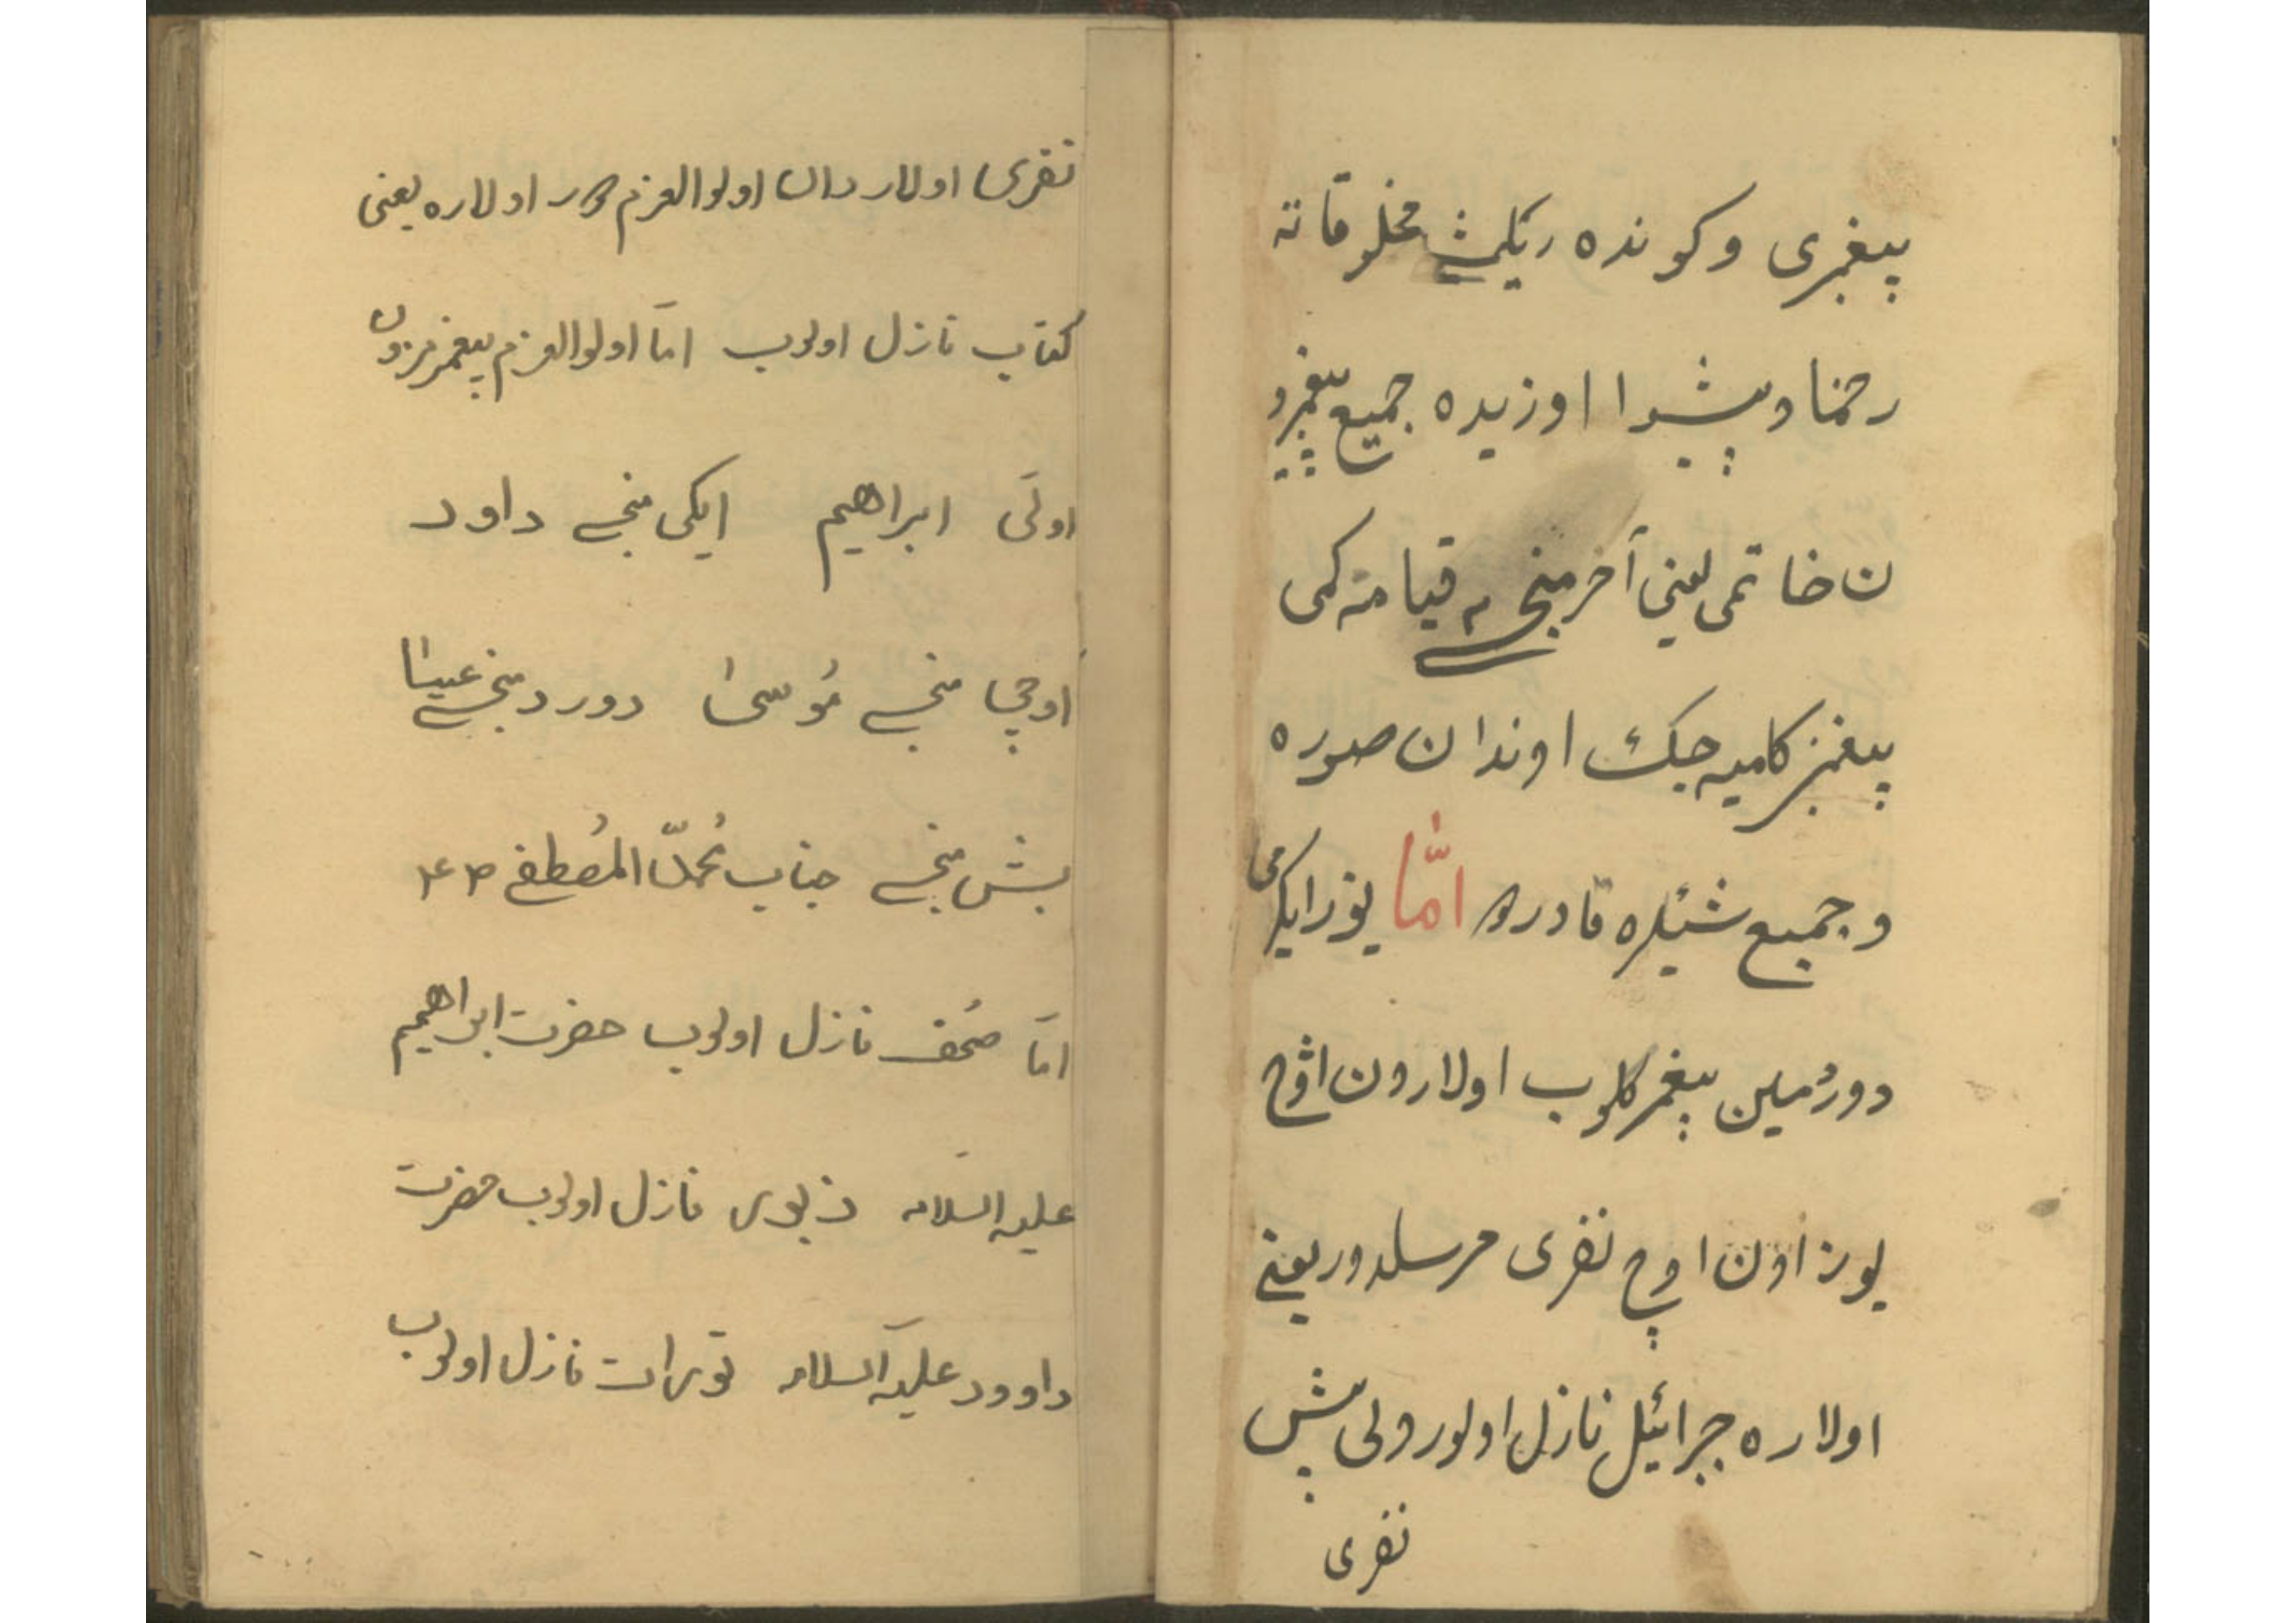 پیغمبری و کونده ریلمیش مخلوقاته
رحنما و پیشوا اوزیده جمیع پیغمبرو
ن خاتمی یعنی آخر منجی سی قیامته کمی
پیغمبر کلمیه جیک اوندان صوره
و جمیع شیئلره قادردور امّا یوز ایکرمی
دورد مین پیغمبر کلوب اولارون اوچ
یوز اون اوچ نفری مرسلدور یعنی
اولاره جبرائیل نازل اولور ولی بش
نفری
نفری اولاردان اولوالعزم دور اولاره یعنی
کتاب نازل اولوب امّا اولوالعزم پیغمبرون
اولی ابراهیم ایکی منجی داود
اوچی منجی مُوسیٰ دورد منجی عیسیٰ
بش منجی جناب مُحمّد المُصطفی
امّا صُحف نازل اولوب حضرت ابراهیم
علیه السلام زبوری نازل اولوب حضرت
داوود علیه السلام تورات نازل اولوب